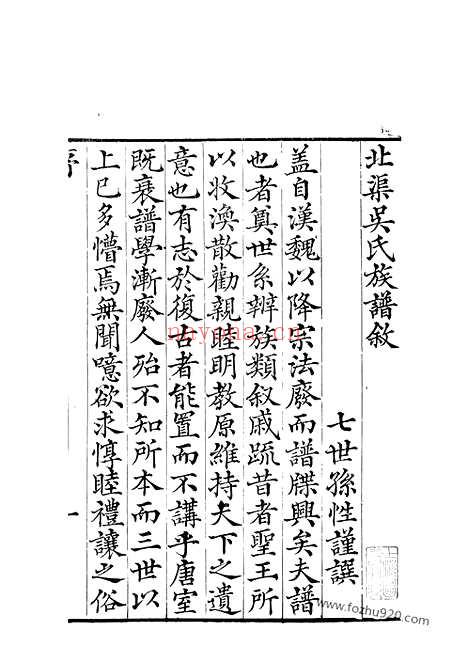 北渠吳氏族譜敘
七世孫性謹譔
盖自漢魏以降宗法廢而譜牒興矣夫譜
也者奠世系辨族類叙戚疏昔者聖王所
以收渙散勸親睦明教原維持天下之遺
意也有志於復古者能置而不講乎唐室
既衰譜學漸廢人殆不知所本而三世以
上已多懵焉無聞噫欲求惇睦禮讓之俗
序
一
nayona.cn
www.fozhu920.com